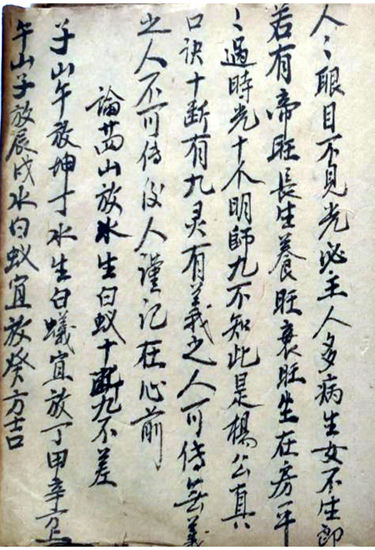 人〻眼目不見光必主人多病生女不生郎
若有帝旺長生養旺衰旺坐在房一年
〻過時光十个明師九不知此是楊公真
口诀十断有九灵有義之人可傳無義
之人不可传後人謹記在心前
論葬山放水生白蚁十斷九不差
子山午放坤丁水生白蟻宜放丁甲辛方吉
午山子放辰戌水白蚁宜放癸方吉